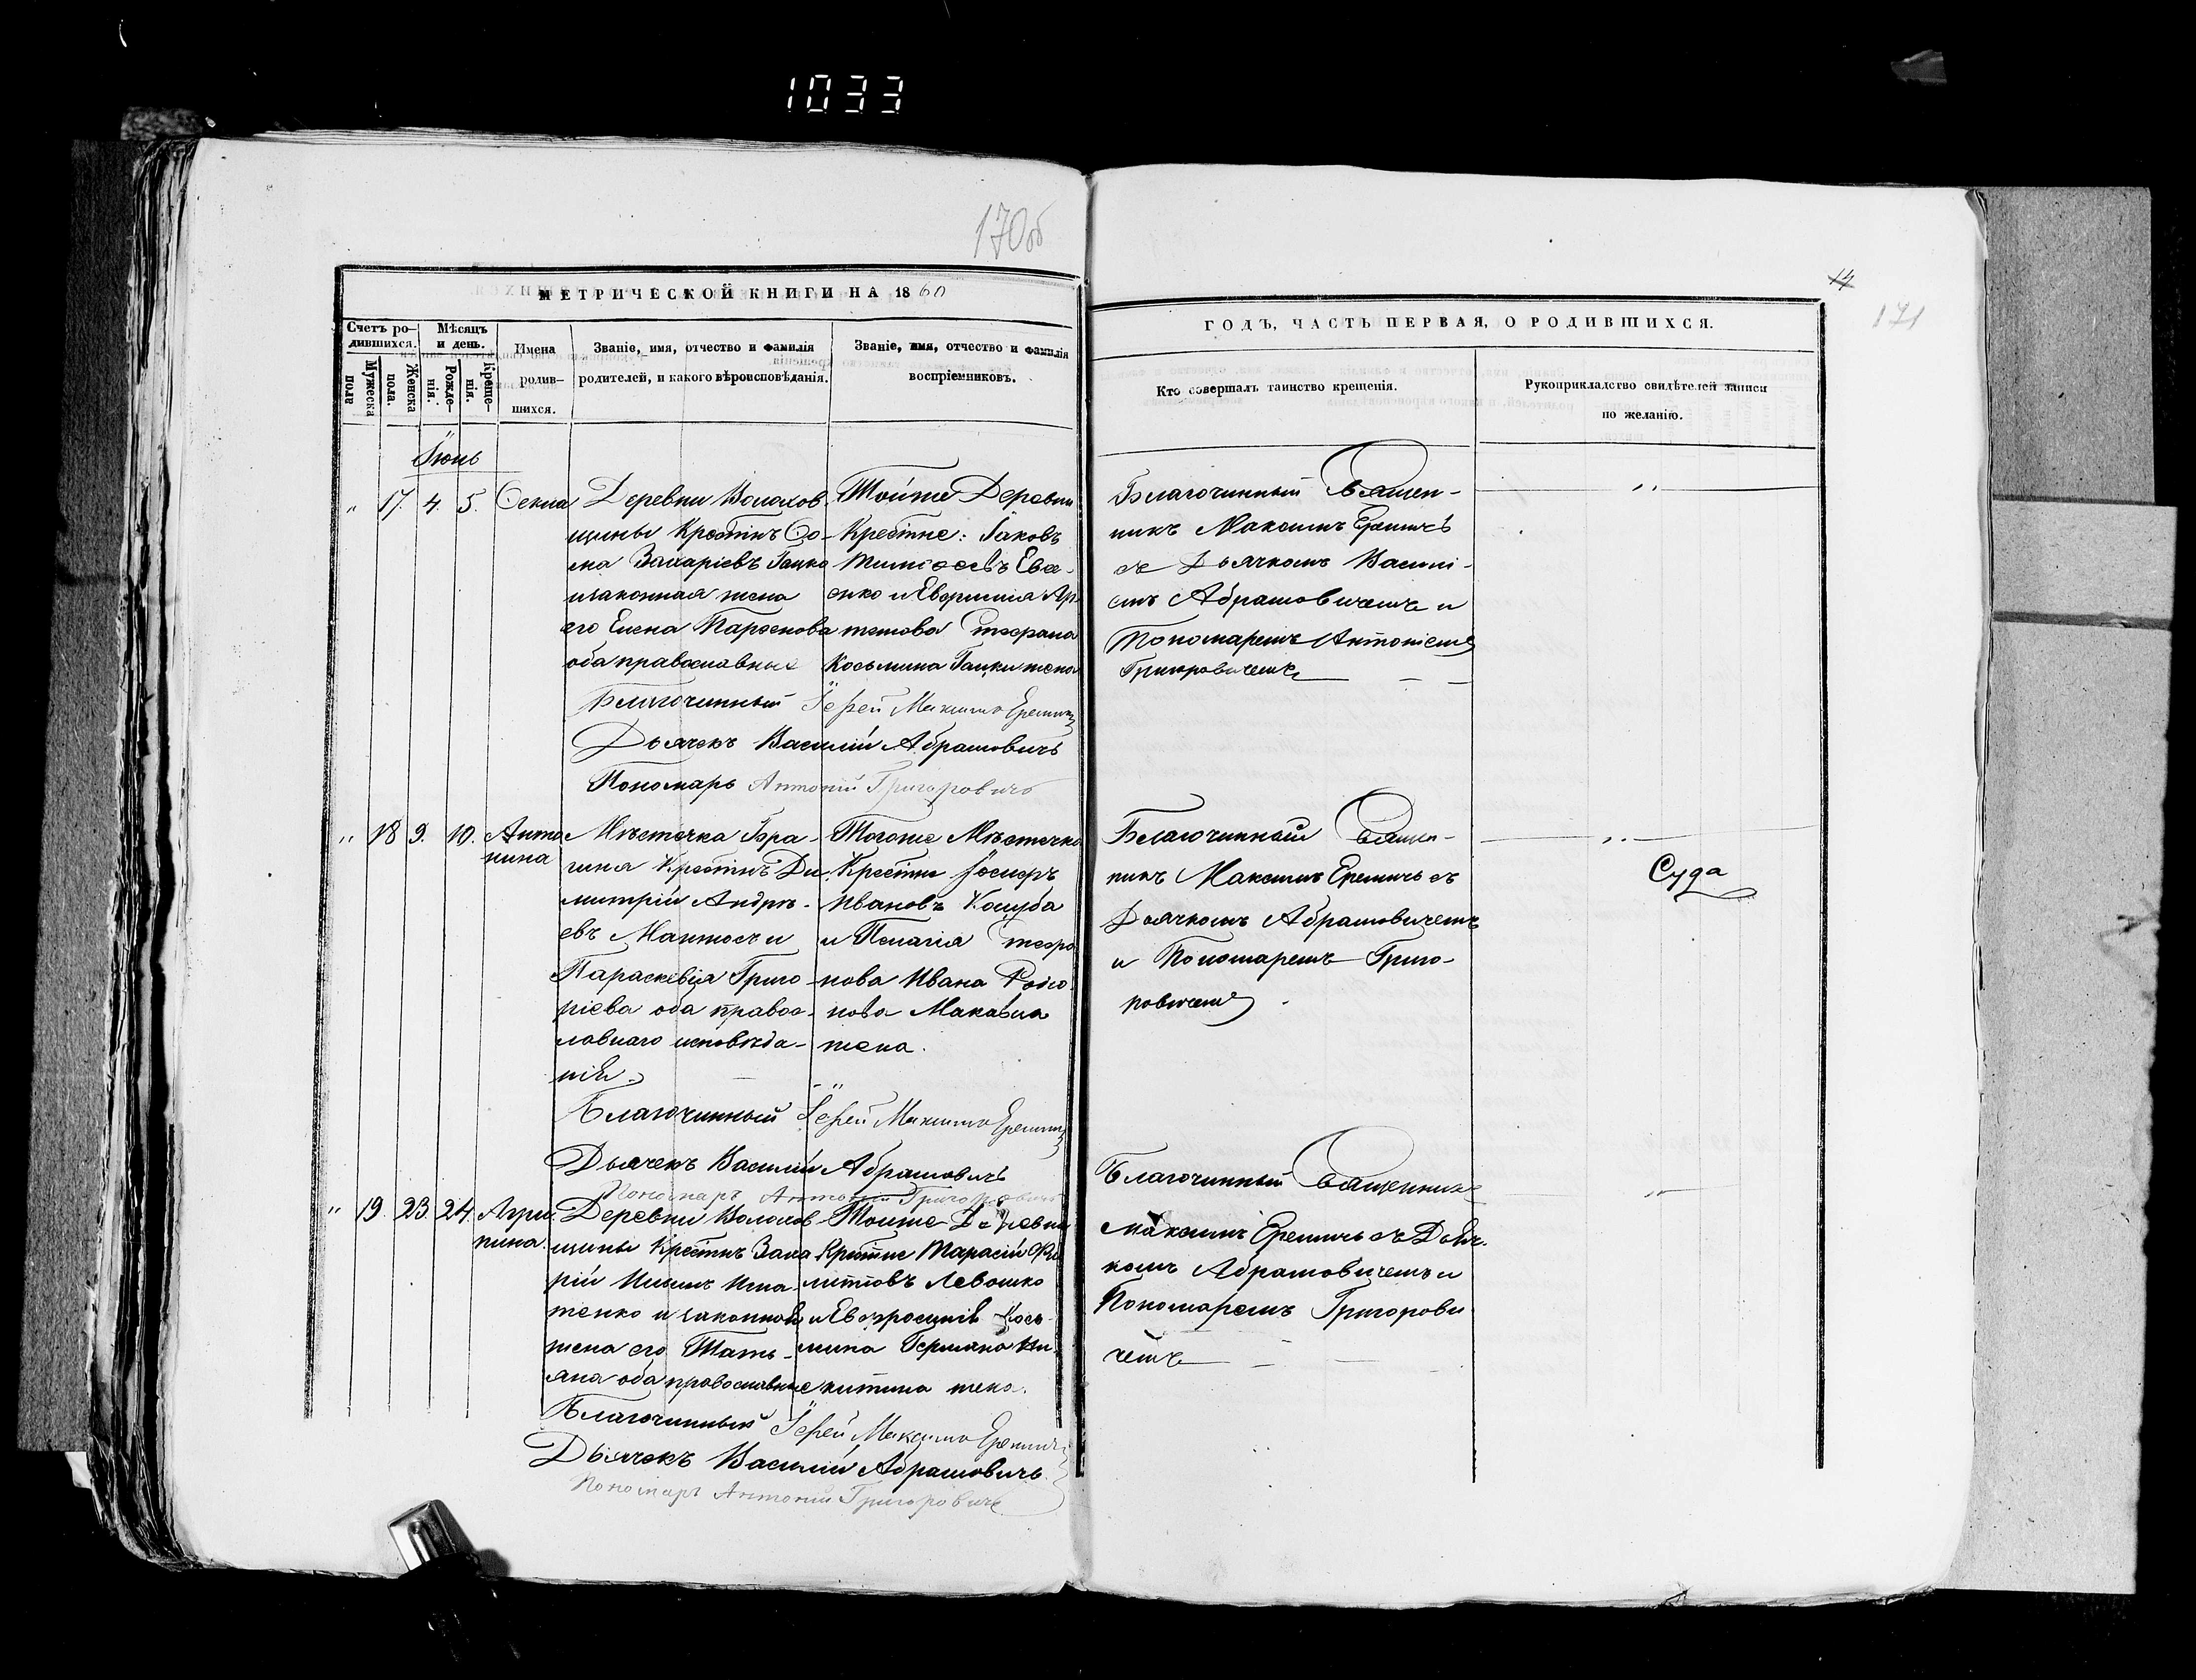 1033
170об
МЕТРИЧЕСКОЙ КНИГИ НА 1860
Счетъ ро-
дившихся.
Мужеска
пола
Женска
пола.
Мѣсяцъ
и день.
Рожде-
нія.
Креще-
нія.
Имена
родив-
шихся.
Званіе, имя, отчество и фамилія
родителей, и какого вѣроисповѣданія.
Званіе, имя, отчество и фамилія
воспріемниковъ.
Іюнь
" 17. 4. 5. Фекла
Деревни Волохов-
щины Крестінъ Фо-
ма Захаріевъ Гацко
и законная жена
его Елена Парѳенова
оба православные
Тойже Деревни
Крестіне: Іаковъ
Тимоѳеевъ Ева-
енко и Евфимія Ар-
темова Стефана
Косьмина Гацки жена
Благочинный Іерей Максимъ Еремичъ
Дьячекъ Василій Абрамовичъ
Пономарь Антоній Григоровичъ
" 18 9. 10. Анто
нина
Мѣстечка Бра-
гина Крестінъ Ди-
митрій Андре-
евъ и
Параскевія Григо
ріева оба правос-
лавнаго исповѣда-
нія.
Тогоже Мѣстечка
Крестіне Іосифъ
Ивановъ Кацуба
и Пелагія Стефа
нова Ивана Родіо
нова
жена.
Благочинный Іерей Максимъ Еремичъ
Дьячекъ Василій Абрамовичъ
Пономарь Антоній Григоровичъ
" 19. 23. 24. Агри
пина.
Деревни Волохов
щины Крестінъ Заха
рій Ильинъ Игна-
тенко и законная
жена его Тать-
яна оба православные
Тойже Деревни
Крестіне Тарасій Фи
липовъ Левошко
и Евфросинія Кось-
мина Германа Ни-
китина жена.
Благочинный Іерей Максимъ Еремичъ
Дьячекъ Василій Абрамовичъ
Пономарь Антоній Григоровичъ
14
171
ГОДЪ, ЧАСТЬ ПЕРВАЯ, О РОДИВШИХСЯ.
Кто совершалъ таинство крещенія.
Рукоприкладство свидѣтелей записи
по желанію.
Благочинный Священ-
никъ Максимъ Еремичъ
съ Дьячкомъ Василі-
емъ Абрамовичемъ и
Пономаремъ Антоніемъ
Григоровичемъ
Благочинный Священ-
никъ Максимъ Еремичъ съ
Дьячкомъ Абрамовичемъ
и Пономаремъ Григо-
ровичемъ
Суда
Благочинный Священникъ
Максимъ Еремичъ съ Дьяч-
комъ Абрамовичемъ и
Пономаремъ Григорови
чемъ